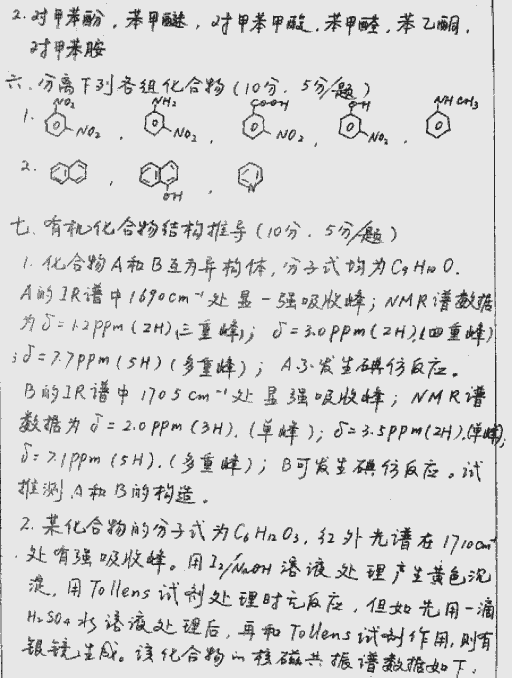 2. 对甲苯酚，苯甲醚，对甲苯甲酸，苯甲醛，苯乙酮，
对甲苯胺
六、分离下列各组化合物（10分，5分/题）
1. NO₂ NO₂ ， NH₂ NO₂ ， COOH NO₂ ， OH NO₂ ， NHCH₃
2. ， OH ， N
七、有机化合物结构推导（10分，5分/题）
1. 化合物A和B互为异构体，分子式均为C₉H₁₀O.
A的IR谱中1690cm⁻¹处显一强吸收峰；NMR谱数据
为δ=1.2ppm(2H)(三重峰)；δ=3.0ppm(2H).(四重峰)
；δ=7.7ppm(5H)(多重峰)；A不发生碘仿反应。
B的IR谱中1705cm⁻¹处显强吸收峰；NMR谱
数据为δ=2.0ppm(3H).(单峰)；δ=3.5ppm(2H).(单峰);
δ=7.1ppm(5H).(多重峰)；B可发生碘仿反应。试
推测A和B的构造。
2. 某化合物的分子式为C₆H₁₂O₃，红外光谱在1710cm⁻¹
处有强吸收峰。用I₂/NaOH溶液处理产生黄色沉
淀，用Tollens试剂处理时无反应，但如先用一滴
H₂SO₄水溶液处理后，再和Tollens试剂作用，则有
银镜生成。该化合物的核磁共振谱数据如下，